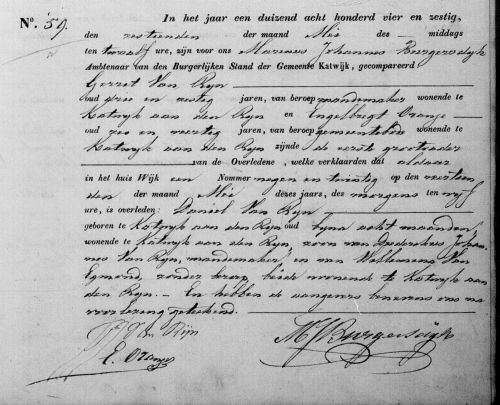 No. 59.
In het jaar een duizend acht honderd vier en zestig,
den zestienden der maand Mei des — middags
ten twaalf ure, zijn voor ons Marinus Johannes Burgersdijk
Ambtenaar van den Burgerlijken Stand der Gemeente Katwijk, gecompareerd
Gerret Van Rijn
oud drie en zestig jaren, van beroep mandemaker wonende te
Katwijk aan den Rijn en Engelbregt Oranje
oud zes en veertig jaren, van beroep gemeentebode wonende te
Katwijk aan den Rijn zijnde de eerste grootvader
van de Overledene, welke verklaarden dat aldaar
in het huis Wijk een Nommer negen en twintig op den
den der maand Mei dezes jaars, des morgens ten vijf
ure, is overleden: Daniel Van Rijn
geboren te Katwijk aan den Rijn oud bijna acht maanden,
wonende te Katwijk aan den Rijn, zoon van Diederikus Johan-
nes Van Rijn, mandemaker, en van Willemina Van
Egmond, zonder beroep, beide wonende te Katwijk aan
den Rijn. — En hebben de aangevers benevens ons na
voorlezing geteekend.
G Van Rijn
E. Oranje
MJBurgersdijk